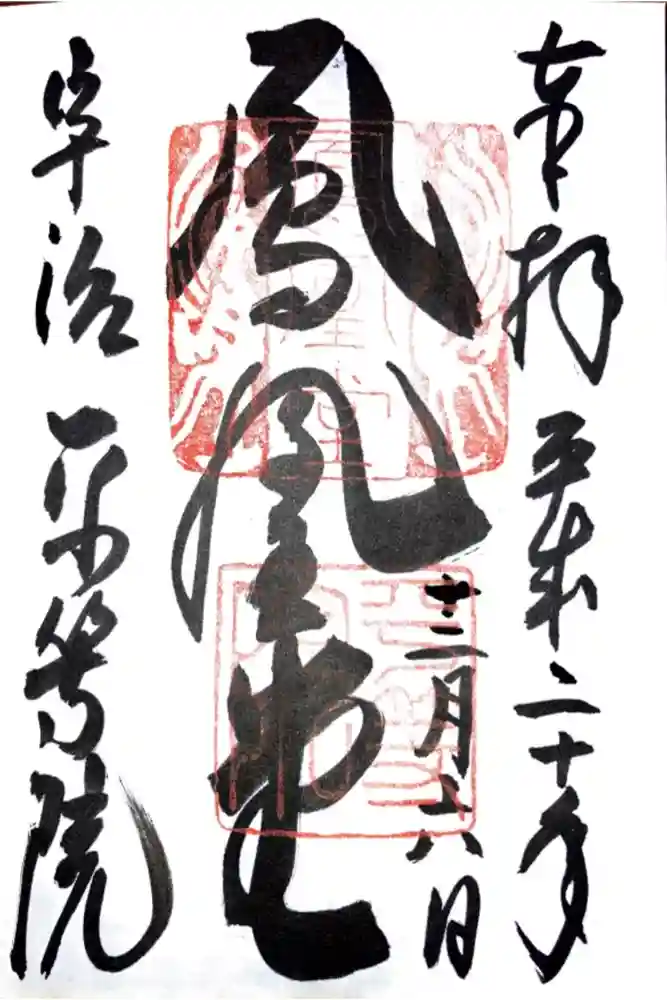 奉拝 平成二十年
十二月六日
鳳凰堂
宇治 平等院